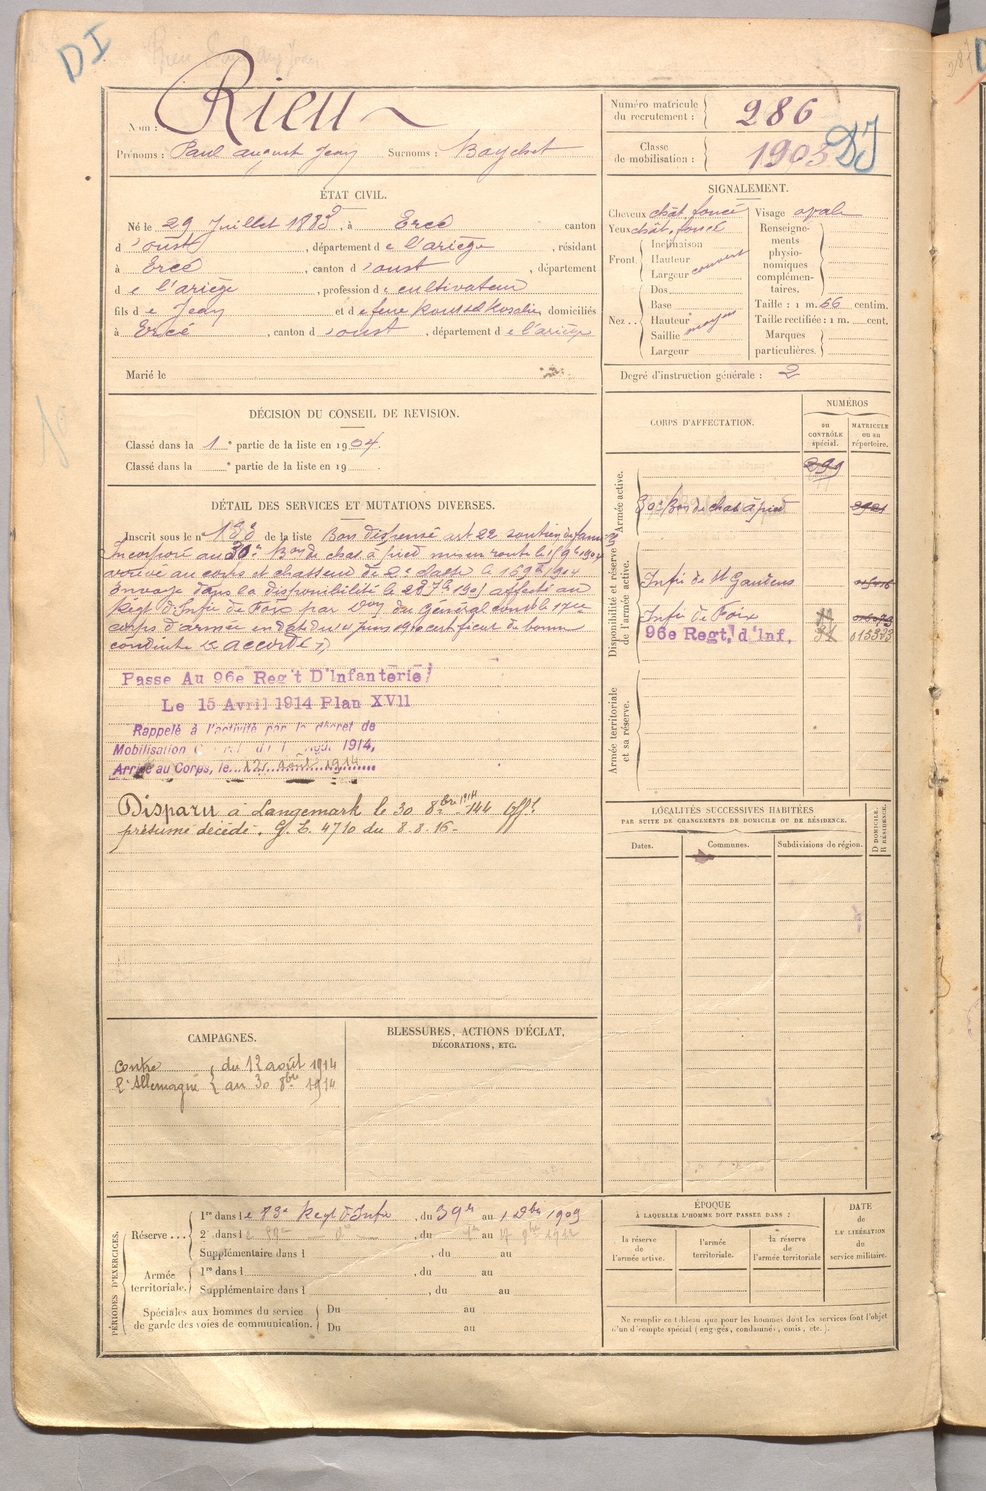 DI
Nom : Rieu
Prénoms : Paul august Jean Surnoms :
Numéro matricule du recrutement : 286
Classe de mobilisation : 1903 DI
ÉTAT CIVIL.
Né le 29 Juillet 1883, à Ercé canton
d'oust, département de l'ariège, résidant
à Ercé, canton d'oust, département
de l'ariège, profession de cultivateur
fils de Jean et de feue domiciliés
à Ercé, canton d'oust, département de l'ariège
Marié le
SIGNALEMENT.
Cheveux chât. foncé
Yeux chât. foncé
Front
Inclinaison
Hauteur
Largeur couvert
Nez ..
Dos
Base
Hauteur
Saillie moyen
Largeur
Visage ovale
Renseignements physionomiques complémentaires.
Taille : 1 m. 66 centim.
Taille rectifiée : 1 m. cent.
Marques particulières.
Degré d'instruction générale : 2
DÉCISION DU CONSEIL DE REVISION.
Classé dans la 1 e partie de la liste en 1904.
Classé dans la e partie de la liste en 19 .
DÉTAIL DES SERVICES ET MUTATIONS DIVERSES.
Inscrit sous le n° 133 de la liste Bon dispensé art 22 soutien de famille
Incorporé au 30e Bon de chas à pied mis en route le
arrivé au corps et chasseur de 2e classe le
Envoyé dans la disponibilité le affecté au
Régt d'Infie de Foix par du Général Comdt le 17me
corps d'armée en date du certificat de bonne
conduite accordé
Passe Au 96e Reg't D'Infanterie
Le 15 Avril 1914 Plan XVII
Rappelé à l'activité par le décret de
Mobilisation 1914,
Arrivé au Corps, le 12 Août 1914
Disparu à Langemark le 30 8bre 1914 144 Off.
présumé décédé. G. E. 4710 du 8.8.16-
CORPS D'AFFECTATION.
NUMÉROS
AU CONTRÔLE spécial.
MATRICULE ou au répertoire.
Armée active.
299
30e Bon de chas à pied
Disponibilité et réserve de l'armée active.
Infie de St Gaudens
Infie de Foix
96e Regt. d'Inf.
Armée territoriale et sa réserve.
LOCALITÉS SUCCESSIVES HABITÉES
PAR SUITE DE CHANGEMENTS DE DOMICILE OU DE RÉSIDENCE.
Dates.
Communes.
Subdivisions de région.
D DOMICILE. R RÉSIDENCE.
CAMPAGNES.
Contre l'Allemagne { du 12 août 1914
au 30 8bre 1914
BLESSURES, ACTIONS D'ÉCLAT,
DÉCORATIONS, ETC.
PÉRIODES D'EXERCICES.
Réserve ...
1re dans le 73e Régt d'Infie, du au 1909
2e dans le , du au
Supplémentaire dans l , du au
Armée territoriale.
1re dans l , du au
Supplémentaire dans l , du au
Spéciales aux hommes du service de garde des voies de communication.
Du au
Du au
ÉPOQUE
À LAQUELLE L'HOMME DOIT PASSER DANS :
la réserve de l'armée active.
l'armée territoriale.
la réserve de l'armée territoriale
DATE de LA LIBÉRATION du service militaire.
Ne remplir ce tableau que pour les hommes dont les services font l'objet
d'un décompte spécial (engagés, condamnés, omis, etc.).